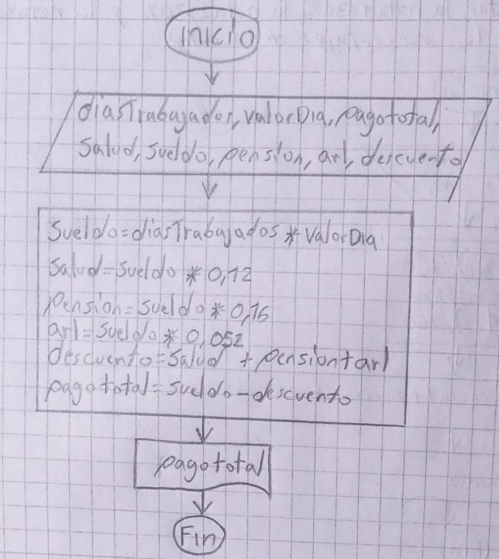 inicio
diasTrabajados, valorDia, pagototal,
Salud, sueldo, pension, arl, descuento
Sueldo=diasTrabajados * ValorDia
Salud=sueldo * 0,12
pension=sueldo * 0,16
arl=sueldo * 0,052
descuento=Salud + pension+arl
pagototal=sueldo-descuento
pagototal
Fin